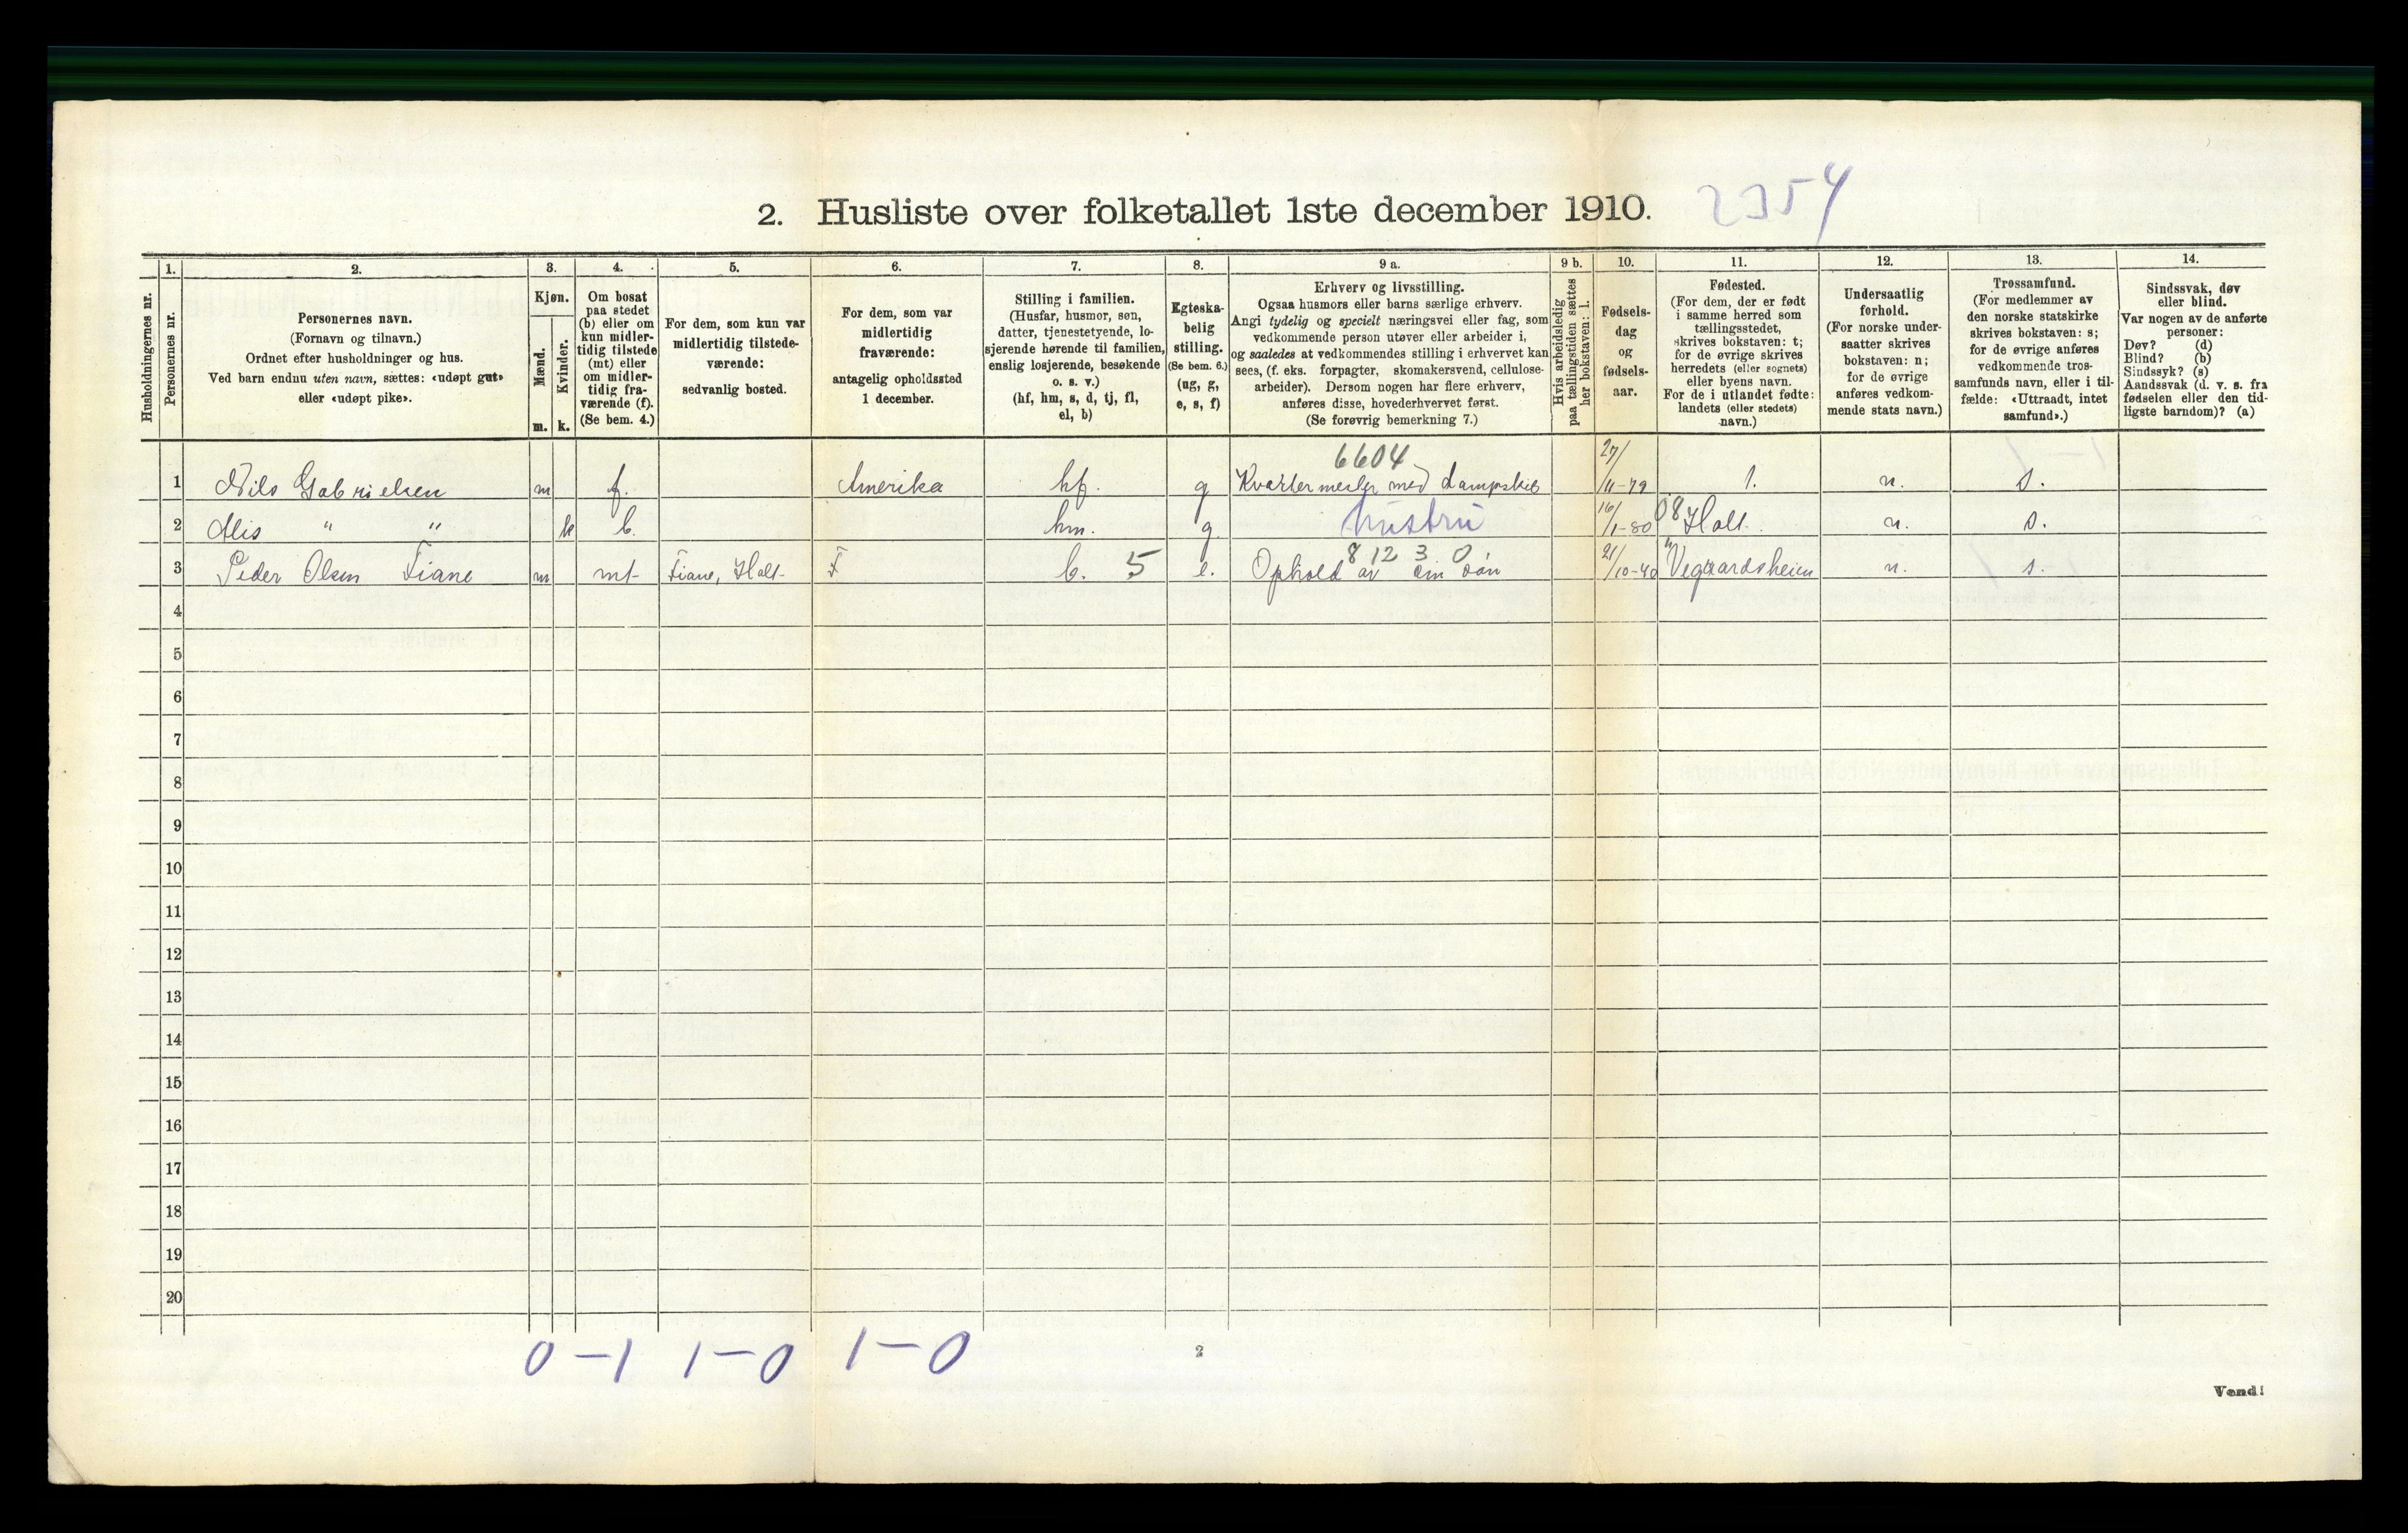 2. Husliste over folketallet 1ste december 1910. 2354
Husholdningernes nr.
1.
Personernes nr.
2.
Personernes navn.
(Fornavn og tilnavn.)
Ordnet efter husholdninger og hus.
Ved barn endnu uten navn, sættes: «udøpt gut»
eller «udøpt pike».
3.
Kjøn.
Mænd.
Kvinder.
m. k.
4.
Om bosat
paa stedet
(b) eller om
kun midler-
tidig tilstede
(mt) eller
om midler-
tidig fra-
værende (f).
(Se bem. 4.)
5.
For dem, som kun var
midlertidig tilstede-
værende:
sedvanlig bosted.
6.
For dem, som var
midlertidig
fraværende:
antagelig opholdssted
1 december.
7.
Stilling i familien.
(Husfar, husmor, søn,
datter, tjenestetyende, lo-
sjerende hørende til familien,
enslig losjerende, besøkende
o. s. v.)
(hf, hm, s, d, tj, fl,
el, b)
8.
Egteska-
belig
stilling.
(Se bem. 6.)
(ug, g,
e, s, f)
9 a.
Erhverv og livsstilling.
Ogsaa husmors eller barns særlige erhverv.
Angi tydelig og specielt næringsvei eller fag, som
vedkommende person utøver eller arbeider i,
og saaledes at vedkommendes stilling i erhvervet kan
sees, (f. eks. forpagter, skomakersvend, cellulose-
arbeider). Dersom nogen har flere erhverv,
anføres disse, hovederhvervet først.
(Se forøvrig bemerkning 7.)
9 b.
Hvis arbeidsledig
paa tællingstiden sættes
her bokstaven: l.
10.
Fødsels-
dag
og
fødsels-
aar.
11.
Fødested.
(For dem, der er født
i samme herred som
tællingsstedet,
skrives bokstaven: t;
for de øvrige skrives
herredets (eller sognets)
eller byens navn.
For de i utlandet fødte:
landets (eller stedets)
navn.)
12.
Undersaatlig
forhold.
(For norske under-
saatter skrives
bokstaven: n;
for de øvrige
anføres vedkom-
mende stats navn.)
13.
Trossamfund.
(For medlemmer av
den norske statskirke
skrives bokstaven: s;
for de øvrige anføres
vedkommende tros-
samfunds navn, eller i til-
fælde: «Uttraadt, intet
samfund».)
14.
Sindssvak, døv
eller blind.
Var nogen av de anførte
personer:
Døv? (d)
Blind? (b)
Sindssyk? (s)
Aandssvak (d. v. s. fra
fødselen eller den tid-
ligste barndom)? (a)
6604
1 Nils Gabrielsen m f. Amerika hf. g Kvartermester med Dampskib 27/11-79 t. n. s.
2 Alis " " k b. hm. g. hustru 16/1-80 08 Holt. n. s.
8 12 3 0
3 Peder Olsen Fiane m mt Fiane, Holt F b. 5 e. Ophold av sin søn 21/10-40 " Vegaardsheien n. s.
4
5
6
7
8
9
10
11
12
13
14
15
16
17
18
19
20
0-1 1-0 1-0
2
Vend!